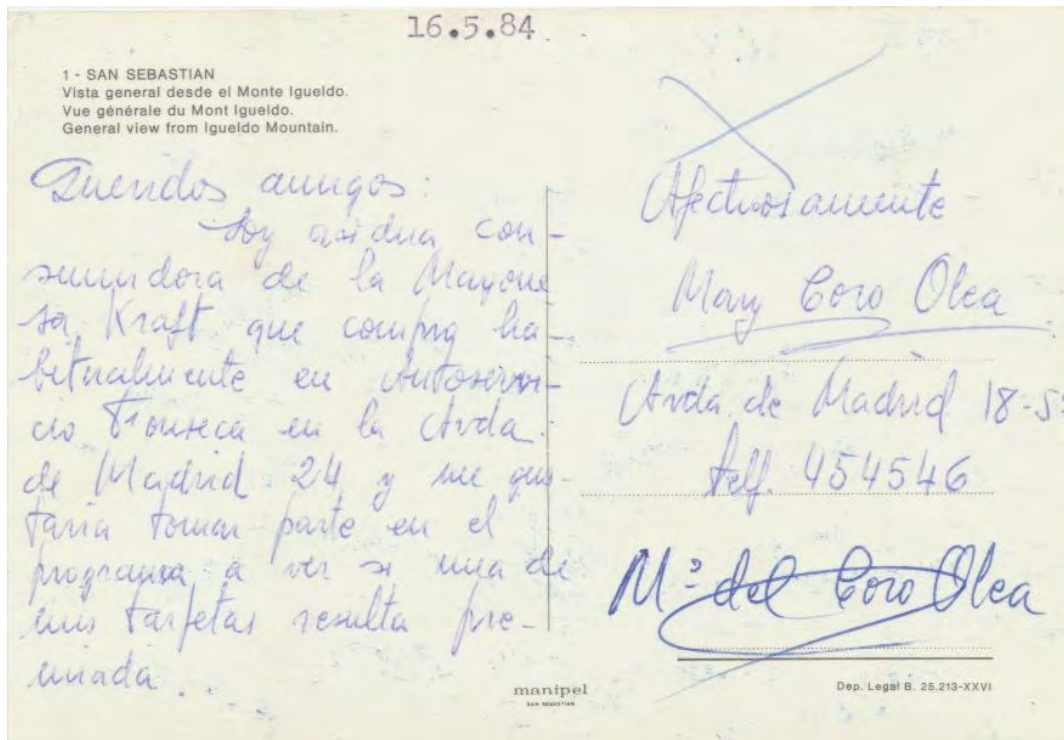 16.5.84
1 - SAN SEBASTIAN
Vista general desde el Monte Igueldo.
Vue générale du Mont Igueldo.
General view from Igueldo Mountain.
Queridos amigos:
Soy asidua con-
sumidora de la Mayone
sa Kraft que compro ha-
bitualmente en Autoservi-
cio Fonseca en la Avda.
de Madrid 24 y me gus-
taria tomar parte en el
programa a ver si una de
mis tarjetas resulta pre-
miada.
Afectuosamente
Mary Coro Olea
Avda. de Madrid 18-5
telf. 454546
Mª del Coro Olea
manipel
SAN SEBASTIAN
Dep. Legal B. 25.213-XXVI